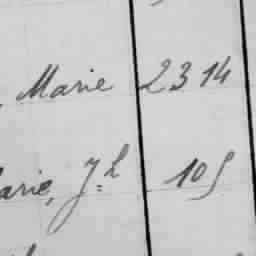 , Marie 23 14
arie, J.h 105